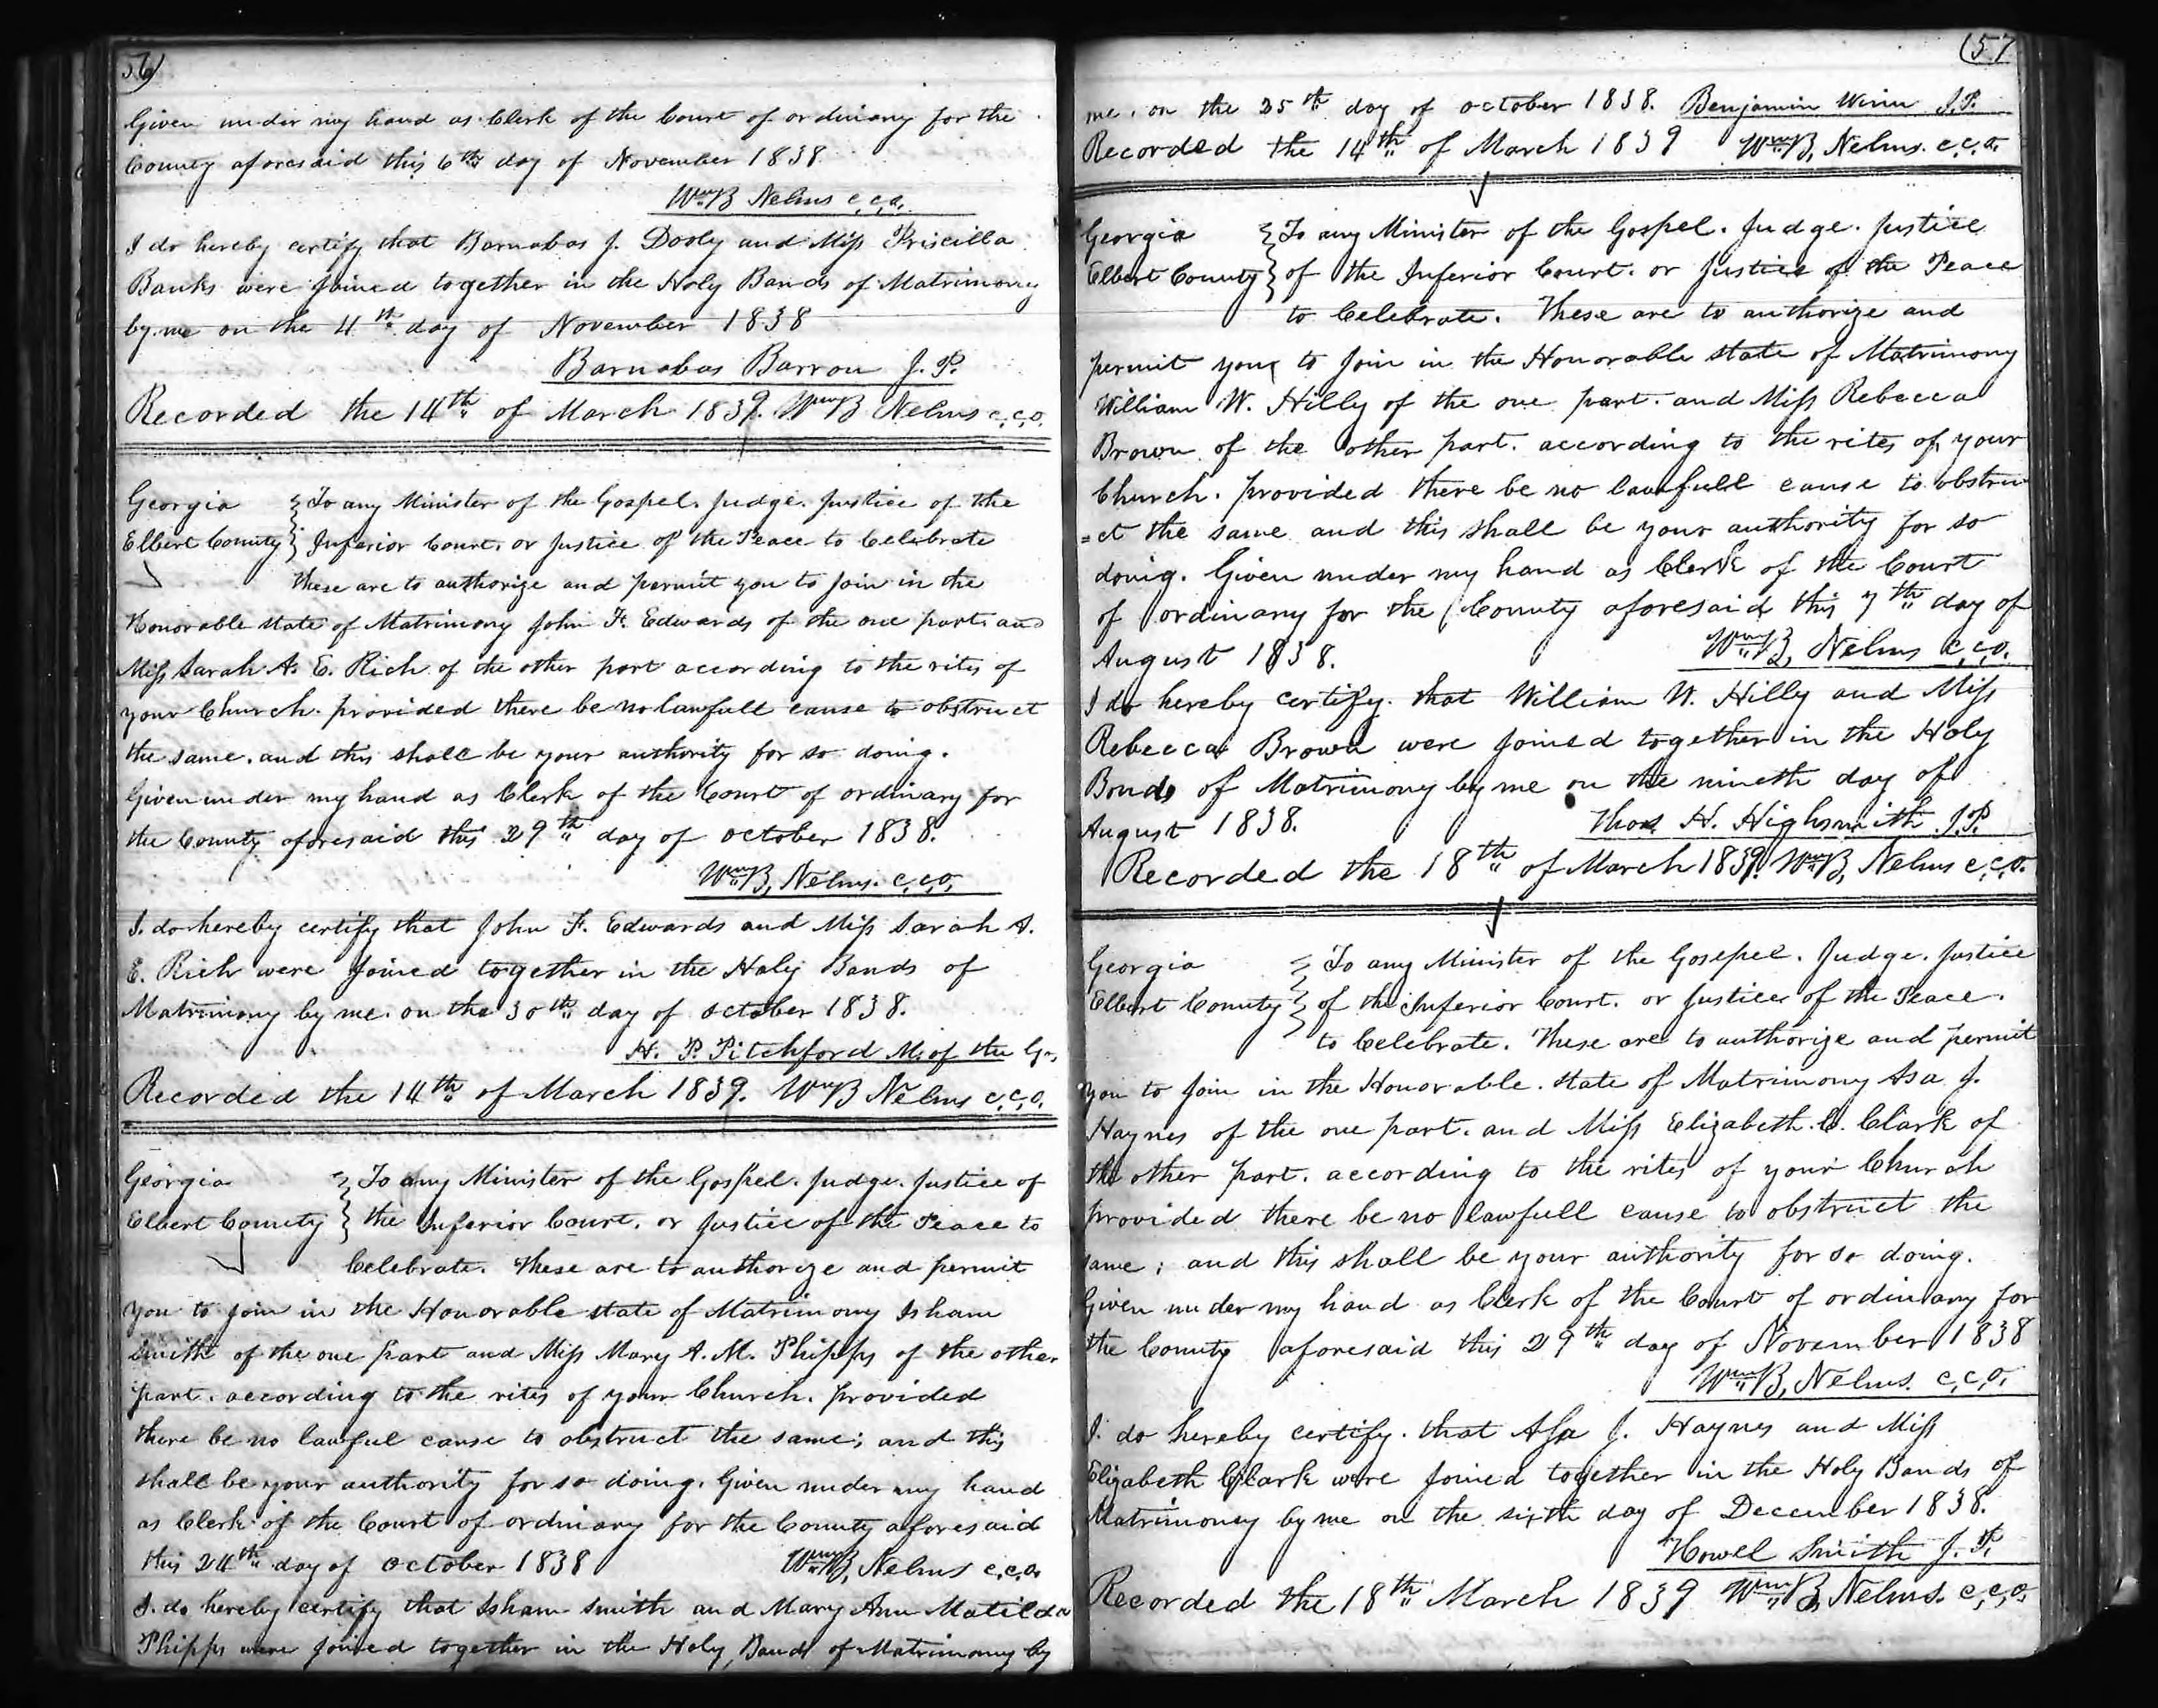 56)
Given under my hand as Clerk of the Court of ordinary for the
County aforesaid this 6th day of November 1838
Wm B Nelms c,c,o,
I do hereby certify that Barnabas J. Dooly and Miss Priscilla
Banks were joined together in the Holy Bands of Matrimony
by me on the 4th day of November 1838
Barnabas Barron J. P.
Recorded the 14th of March 1839. Wm B Nelms c,c,o,
Georgia } To any Minister of the Gospel. Judge. Justice of the
Elbert County } Inferior Court. or Justice of the Peace to Celebrate
These are to authorize and permit you to Join in the
Honorable state of Matrimony John F. Edwards of the one part and
Miss Sarah A. E. Rich of the other part according to the rites of
your Church. provided there be no lawfull cause to obstruct
the same. and this shall be your authority for so doing.
Given under my hand as Clerk of the Court of ordinary for
the County aforesaid this 29th day of october 1838.
Wm B, Nelms. c,c,o,
I. do hereby certify that John F. Edwards and Miss Sarah A.
E. Rich were joined together in the Holy Bands of
Matrimony by me. on the 30th day of october 1838.
H. P. Pitchford M. of the Gs,
Recorded the 14th of March 1839. Wm B Nelms c,c,o,
Georgia } To any Minister of the Gospel. Judge. Justice of
Elbert County } the Inferior Court. or Justice of the Peace to
Celebrate. These are to authorize and permit
you to join in the Honorable state of Matrimony Isham
Smith of the one part and Miss Mary A. M. Phipps of the other
part. according to the rites of your Church. provided
there be no lawful cause to obstruct the same; and this
shall be your authority for so doing. Given under my hand
as Clerk of the Court of ordinary for the County aforesaid
this 24th day of october 1838 Wm B, Nelms c,c,o,
I. do hereby certify that Isham Smith and Mary Ann Matilda
Phipps were joined together in the Holy Bands of Matrimony by
(57
me. on the 25th day of october 1838. Benjamin Winn J.P.
Recorded the 14th of March 1839 Wm B, Nelms. c,c,o,
Georgia } To any Minister of the Gospel. Judge. Justice
Elbert County } of the Inferior Court. or Justice of the Peace
to Celebrate. These are to authorize and
permit you to Join in the Honorable state of Matrimony
William W. Hilly of the one part. and Miss Rebecca
Brown of the other part. according to the rites of your
Church. provided there be no lawfull cause to obstru
=ct the same and this shall be your authority for so
doing. Given under my hand as Clerk of the Court
of ordinary for the County aforesaid this 7th day of
August 1838. Wm B, Nelms c,c,o.
I do hereby certify. that William W. Hilly and Miss
Rebecca Brown were joined together in the Holy
Bonds of Matrimony by me on the nineth day of
August 1838. Thos. H. Highsmith J.P.
Recorded the 18th of March 1839. Wm B, Nelms c,c,o.
Georgia } To any Minister of the Gosepel. Judge. Justice
Elbert County } of the Inferior Court. or Justice of the Peace.
to Celebrate. These are to authorize and permit
you to Join in the Honorable. state of Matrimony Asa J.
Haynes of the one part. and Miss Elizabeth. C. Clark of
the other part. according to the rites of your Church
provided there be no lawfull cause to obstruct the
same; and this shall be your authority for so doing.
Given under my hand as Clerk of the Court of ordinary for
the County aforesaid this 29th day of November 1838
Wm B, Nelms. c,c,o,
I. do hereby certify. that Asa J. Haynes and Miss
Elizabeth Clark were joined together in the Holy Bands of
Matrimoney by me on the sixth day of December 1838.
Howel Smith J. P.
Recorded the 18th March 1839 Wm B, Nelms. c,c,o,